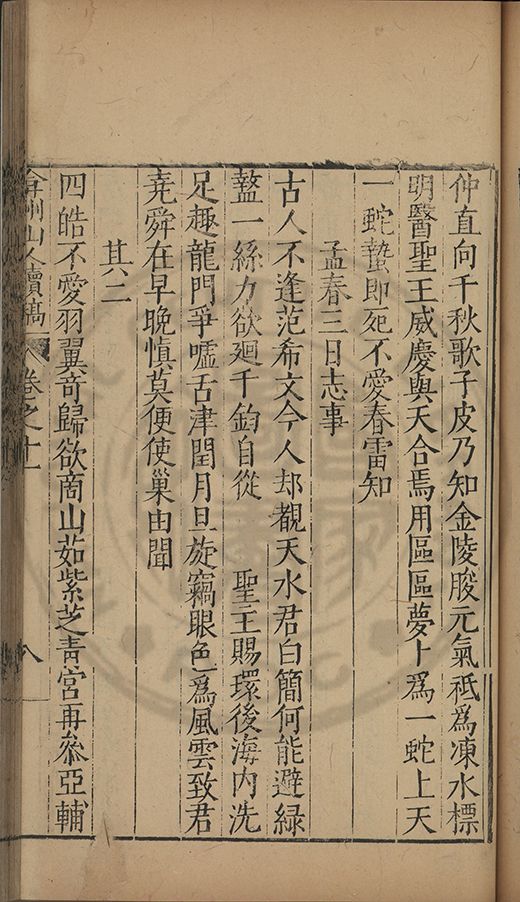 仲直向千秋歌子皮乃知金陵朘元氣祗為凍水標
明醫聖王威慶與天合焉用區區夢卜爲一蛇上天
一蛇蟄即死不愛春雷知
孟春三日志事
古人不逢范希文今人却覩天水君白簡何能避綠
盭一絲力欲廻千鈞自從　聖王賜環後海內洗
足趣龍門爭噓舌津閏月旦旋竊眼色爲風雲致君
堯舜在早晚慎莫便使巢由聞
其二
四皓不愛羽翼奇歸欲商山茹紫芝青宮再叅亞輔
弇州山人續稿　卷之十一　八